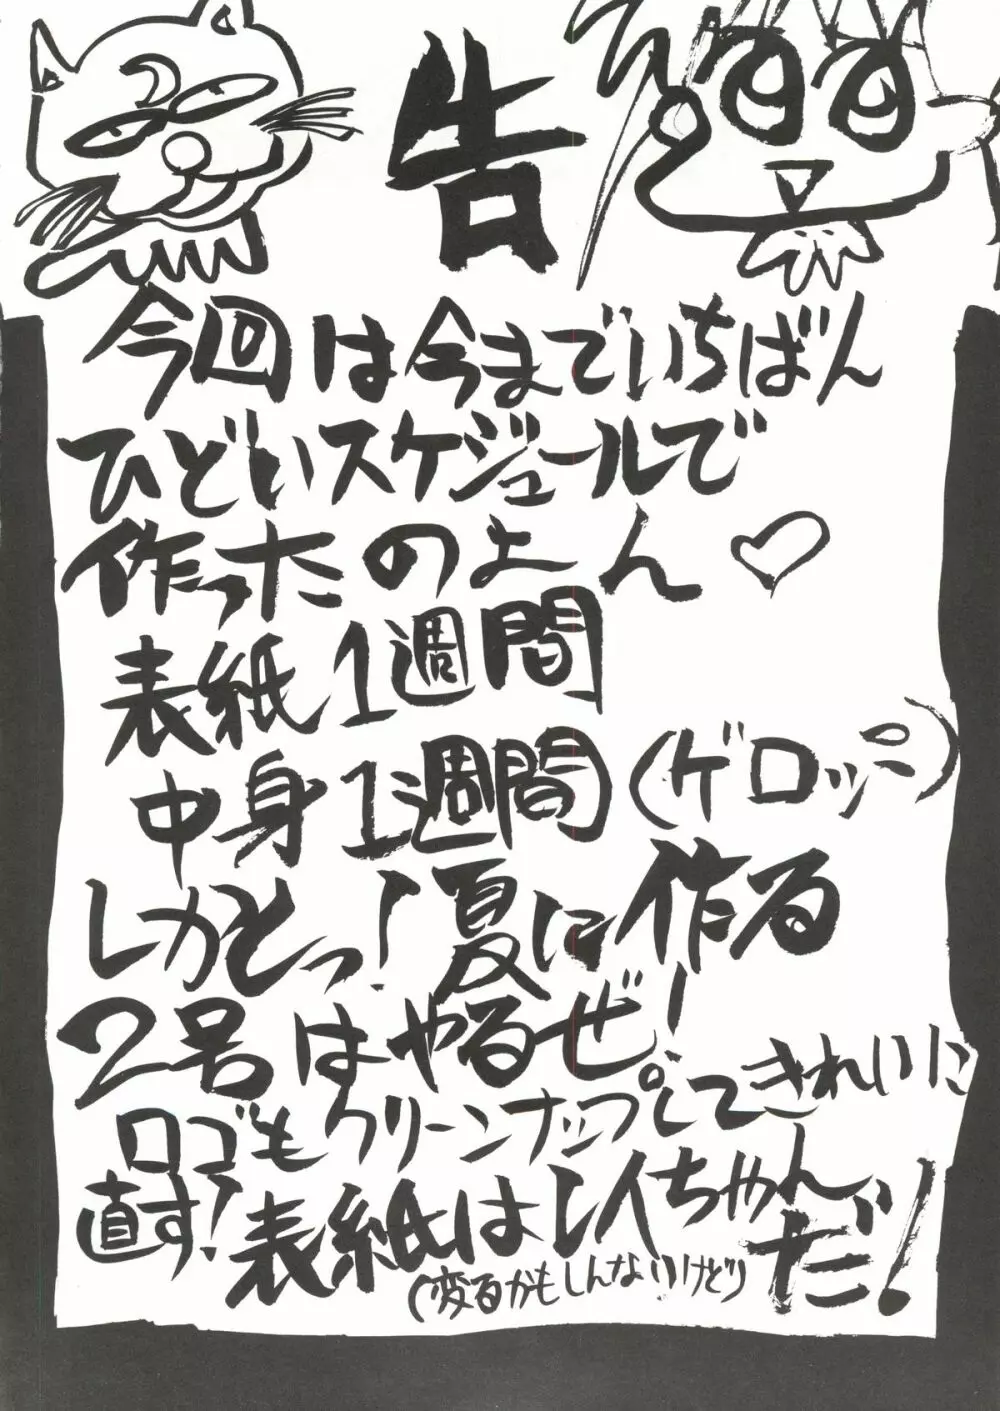 告
今回は今まででいちばん
ひどいスケジュールで
作ったのよん♡
表紙1週間
中身1週間(ゲロッパ)
しかとっ!夏に作る
2号はやるぜ!
ロゴもクリーンナップしてきれいに
直す!表紙はレイちゃんだ!
(変るかもしんないけど)